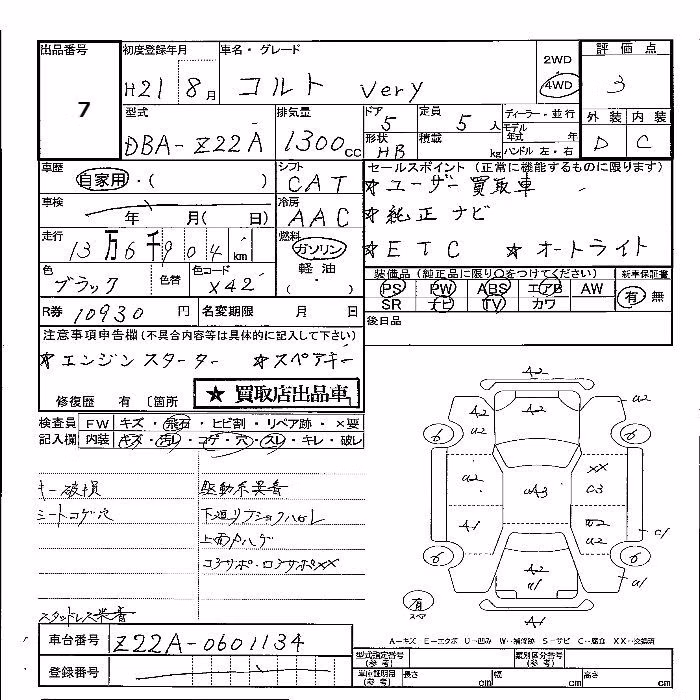 出品番号 7
初度登録年月 H21 8月
車名・グレード コルト very
2WD
4WD
評価点 3
型式 DBA-Z22A
排気量 1300cc
ドア 5
形状 HB
定員 5人
積載 kg
ディーラー・並行
モデル年式 年
ハンドル 左・右
外装 内装
D C
車歴 自家用・( )
シフト CAT
セールスポイント(正常に機能するものに限ります)
★ユーザー買取車
★純正ナビ
★ETC ★オートライト
車検 年 月( 日)
冷房 AAC
走行 13万6千904km
燃料 ガソリン
軽油
(・)
色 ブラック
色替
色コード X42
装備品(純正品に限り○をつけてください)
PS PW ABS エアB AW
SR ナビ TV カワ
新車保証書
有 無
R券 10930円
名変期限 月 日
後日品
注意事項申告欄(不具合内容等は具体的に記入して下さい)
★エンジンスターター ★スペアキー
修復歴 有 〔箇所
★買取店出品車
検査員記入欄
FW キズ・飛石・ヒビ割・リペア跡・×要
内装 キズ・汚レ・コゲ・穴・スレ・キレ・破レ
キー破損
シートコゲ穴
駆動系異音
下廻リフショクハガレ
上面Pハゲ
コアサポ・ロアサポXX
スタッドレス
A2
A2
U2
A2
U2
6
6
U2
A3
XX
C3
A1
B2
U2
C1
6
6
A2
U1
U1
A1
有
スペア
A…キズ E…エクボ U…凹ミ W…補修跡 S…サビ C…腐食 XX…交換済
車台番号 Z22A-0601134
登録番号
型式指定番号(参考)
類別区分番号(参考)
車庫証明用(参考) 長さ cm 幅 cm 高さ cm